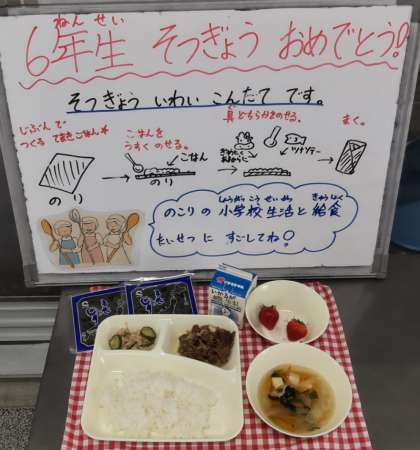 ねん せい
6年生 そつぎょう おめでとう!
そつぎょう いわい こんだて です。
じぶんで
つくる てまきごはん
のり
ごはんを
うすく のせる。
ごはん
のり
具 どちらかをのせる。
ツナソテー
まく。
しょうがっこう せいかつ きゅうしょく
のこりの 小学校生活と 給食
たいせつに すごしてね!